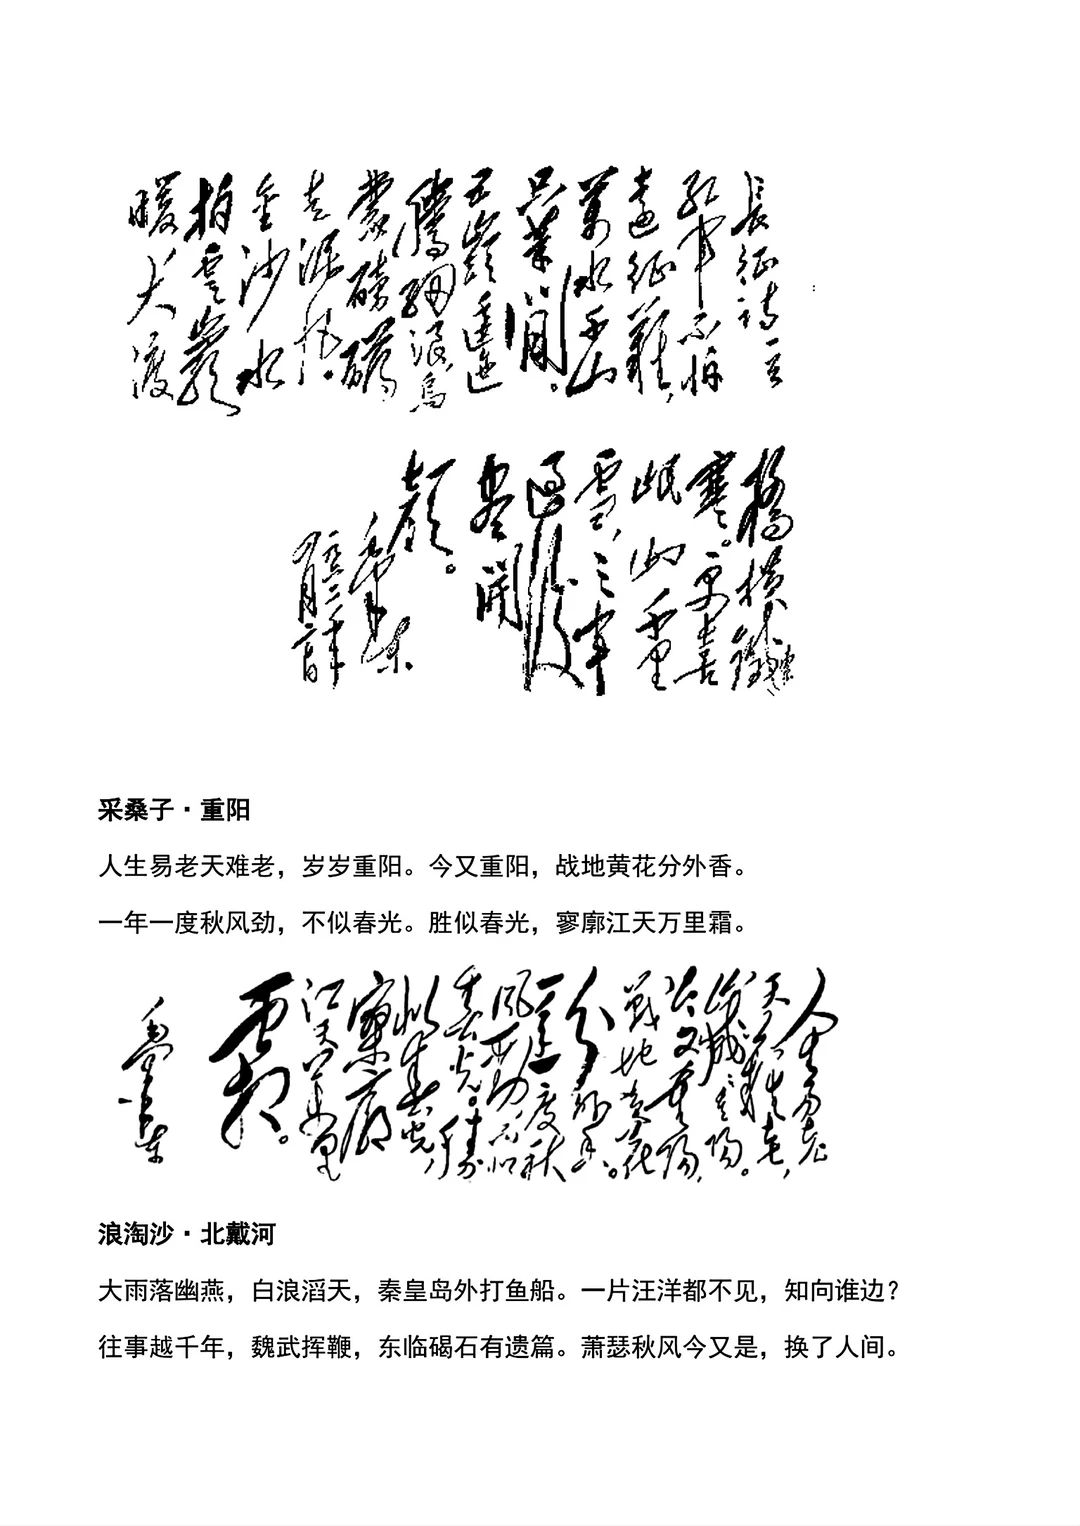 長征詩一首
紅軍不怕
遠征難,
萬水千山
只等閒。
五嶺逶迤
騰細浪烏
蒙磅礴
走泥丸。
金沙水
拍雲巖
暖大渡
橋橫鐵索
寒。更喜
岷山千里
雪,三軍
過後
盡開
顏。
毛澤東
采桑子·重阳
人生易老天难老，岁岁重阳。今又重阳，战地黄花分外香。
一年一度秋风劲，不似春光。胜似春光，寥廓江天万里霜。
人生易老
天難老,
歲歲重陽。
今又重陽,
戰地黃花
分外香。
一年一度秋
風勁,不似
春光。勝
似春光,
寥廓
江天萬里
霜。
毛澤東
浪淘沙·北戴河
大雨落幽燕，白浪滔天，秦皇岛外打鱼船。一片汪洋都不见，知向谁边？
往事越千年，魏武挥鞭，东临碣石有遗篇。萧瑟秋风今又是，换了人间。